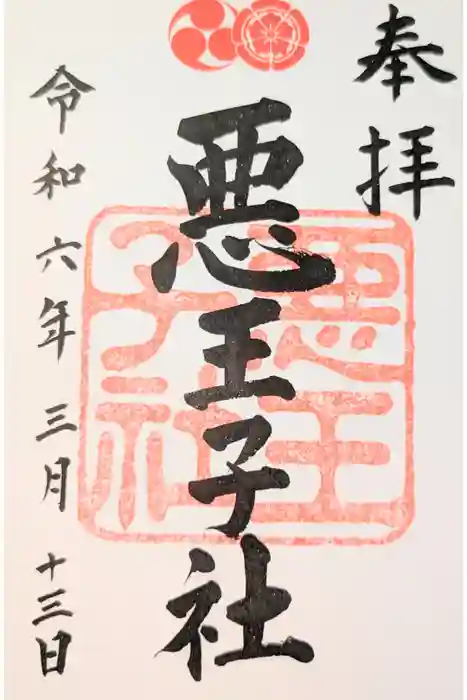 奉拝
悪王子社
悪王
子社
令和六年三月十三日